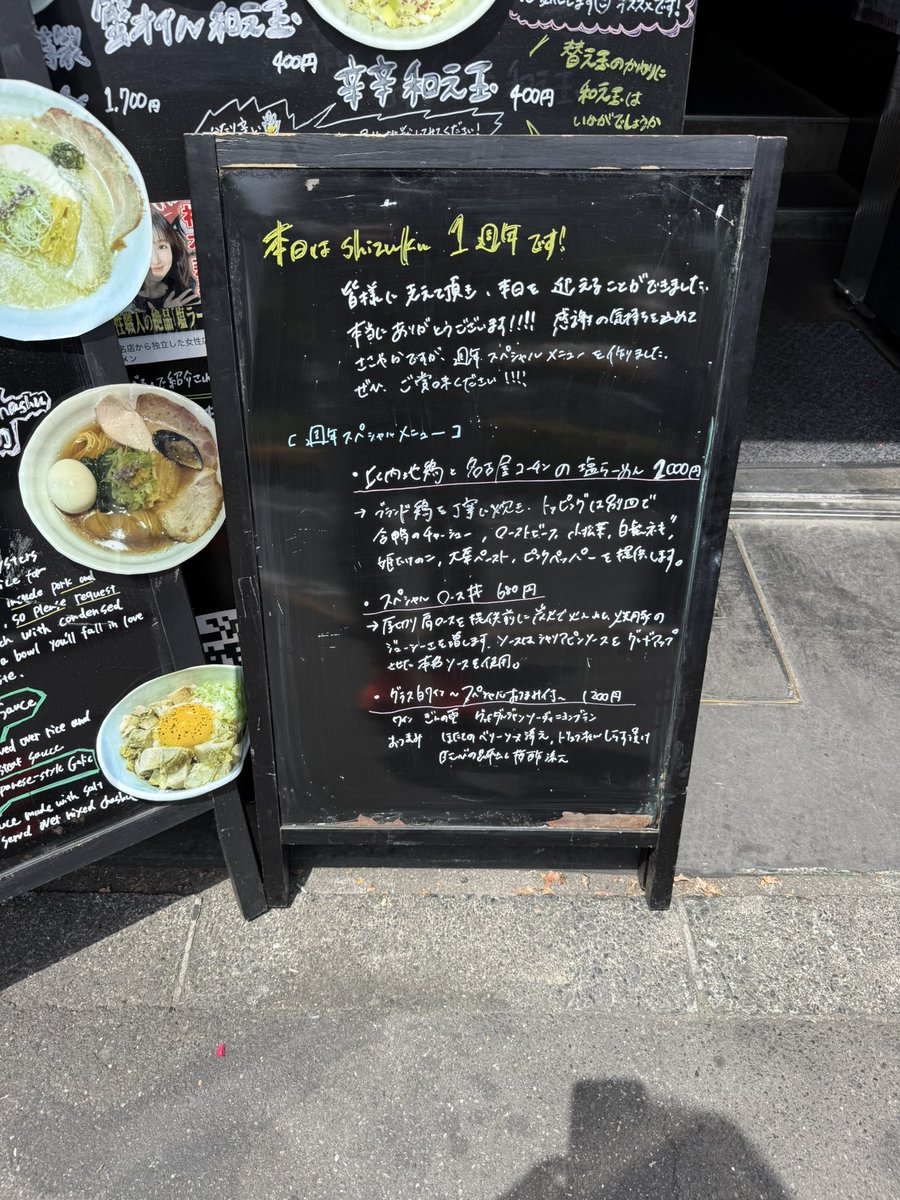 蜜オイル和え玉
400円
1,700円
辛辛和え玉
400円
替え玉のかわりに
和え玉は
いかがでしょうか
本日は shizuku 1周年です!
皆様に支えて頂き、本日を 迎えることができました。
本当にありがとうございます!!!! 感謝の気持ちを込めて
ささやかですが、周年スペシャルメニューを作りました。
ぜひ、ご賞味ください!!!!
[周年スペシャルメニュー]
・比内地鶏と名古屋コーチンの塩らーめん 2000円
→ ブランド鶏を丁寧に炊き、トッピングは別皿で
合鴨のチャーシュー, ローストビーフ, 小松菜, 白髪ネギ,
姫たけのこ, 大葉ペースト, ピンクペッパーを提供します。
・スペシャル ロース丼 680円
→ 厚切り肩ロースを提供前に炭火で火入れし
ジューシーさを増します。ソースはシャリアピンソースをグレードアップ
させた本格ソースを使用。
・グラス白ワイン〜スペシャルおつまみ付〜 1200円
ワイン
おつまみ
性職人の絶品!塩ラー
名店から独立した女性店
メン
inside pork and
so Please request
with condensed
a bowl you'll fall in love
sauce
over rice and
sauce
made with salt
served over mixed